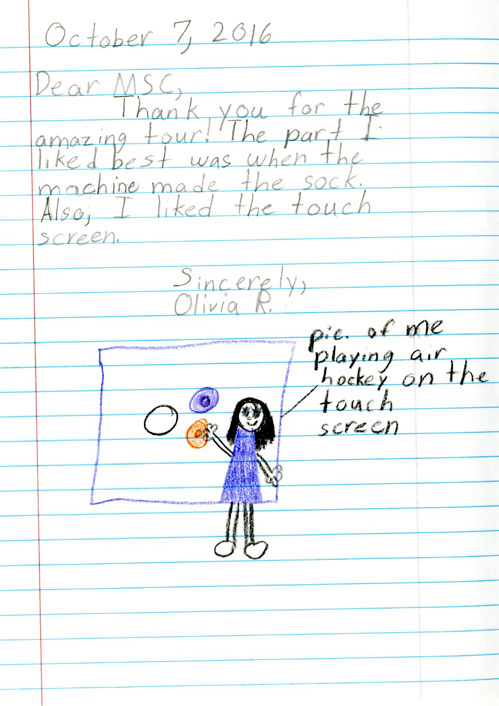 October 7, 2016
Dear MSC,
Thank you for the
amazing tour! The part I
liked best was when the
machine made the sock.
Also, I liked the touch
screen.
Sincerely,
Olivia R.
pic. of me
playing air
hockey on the
touch
screen